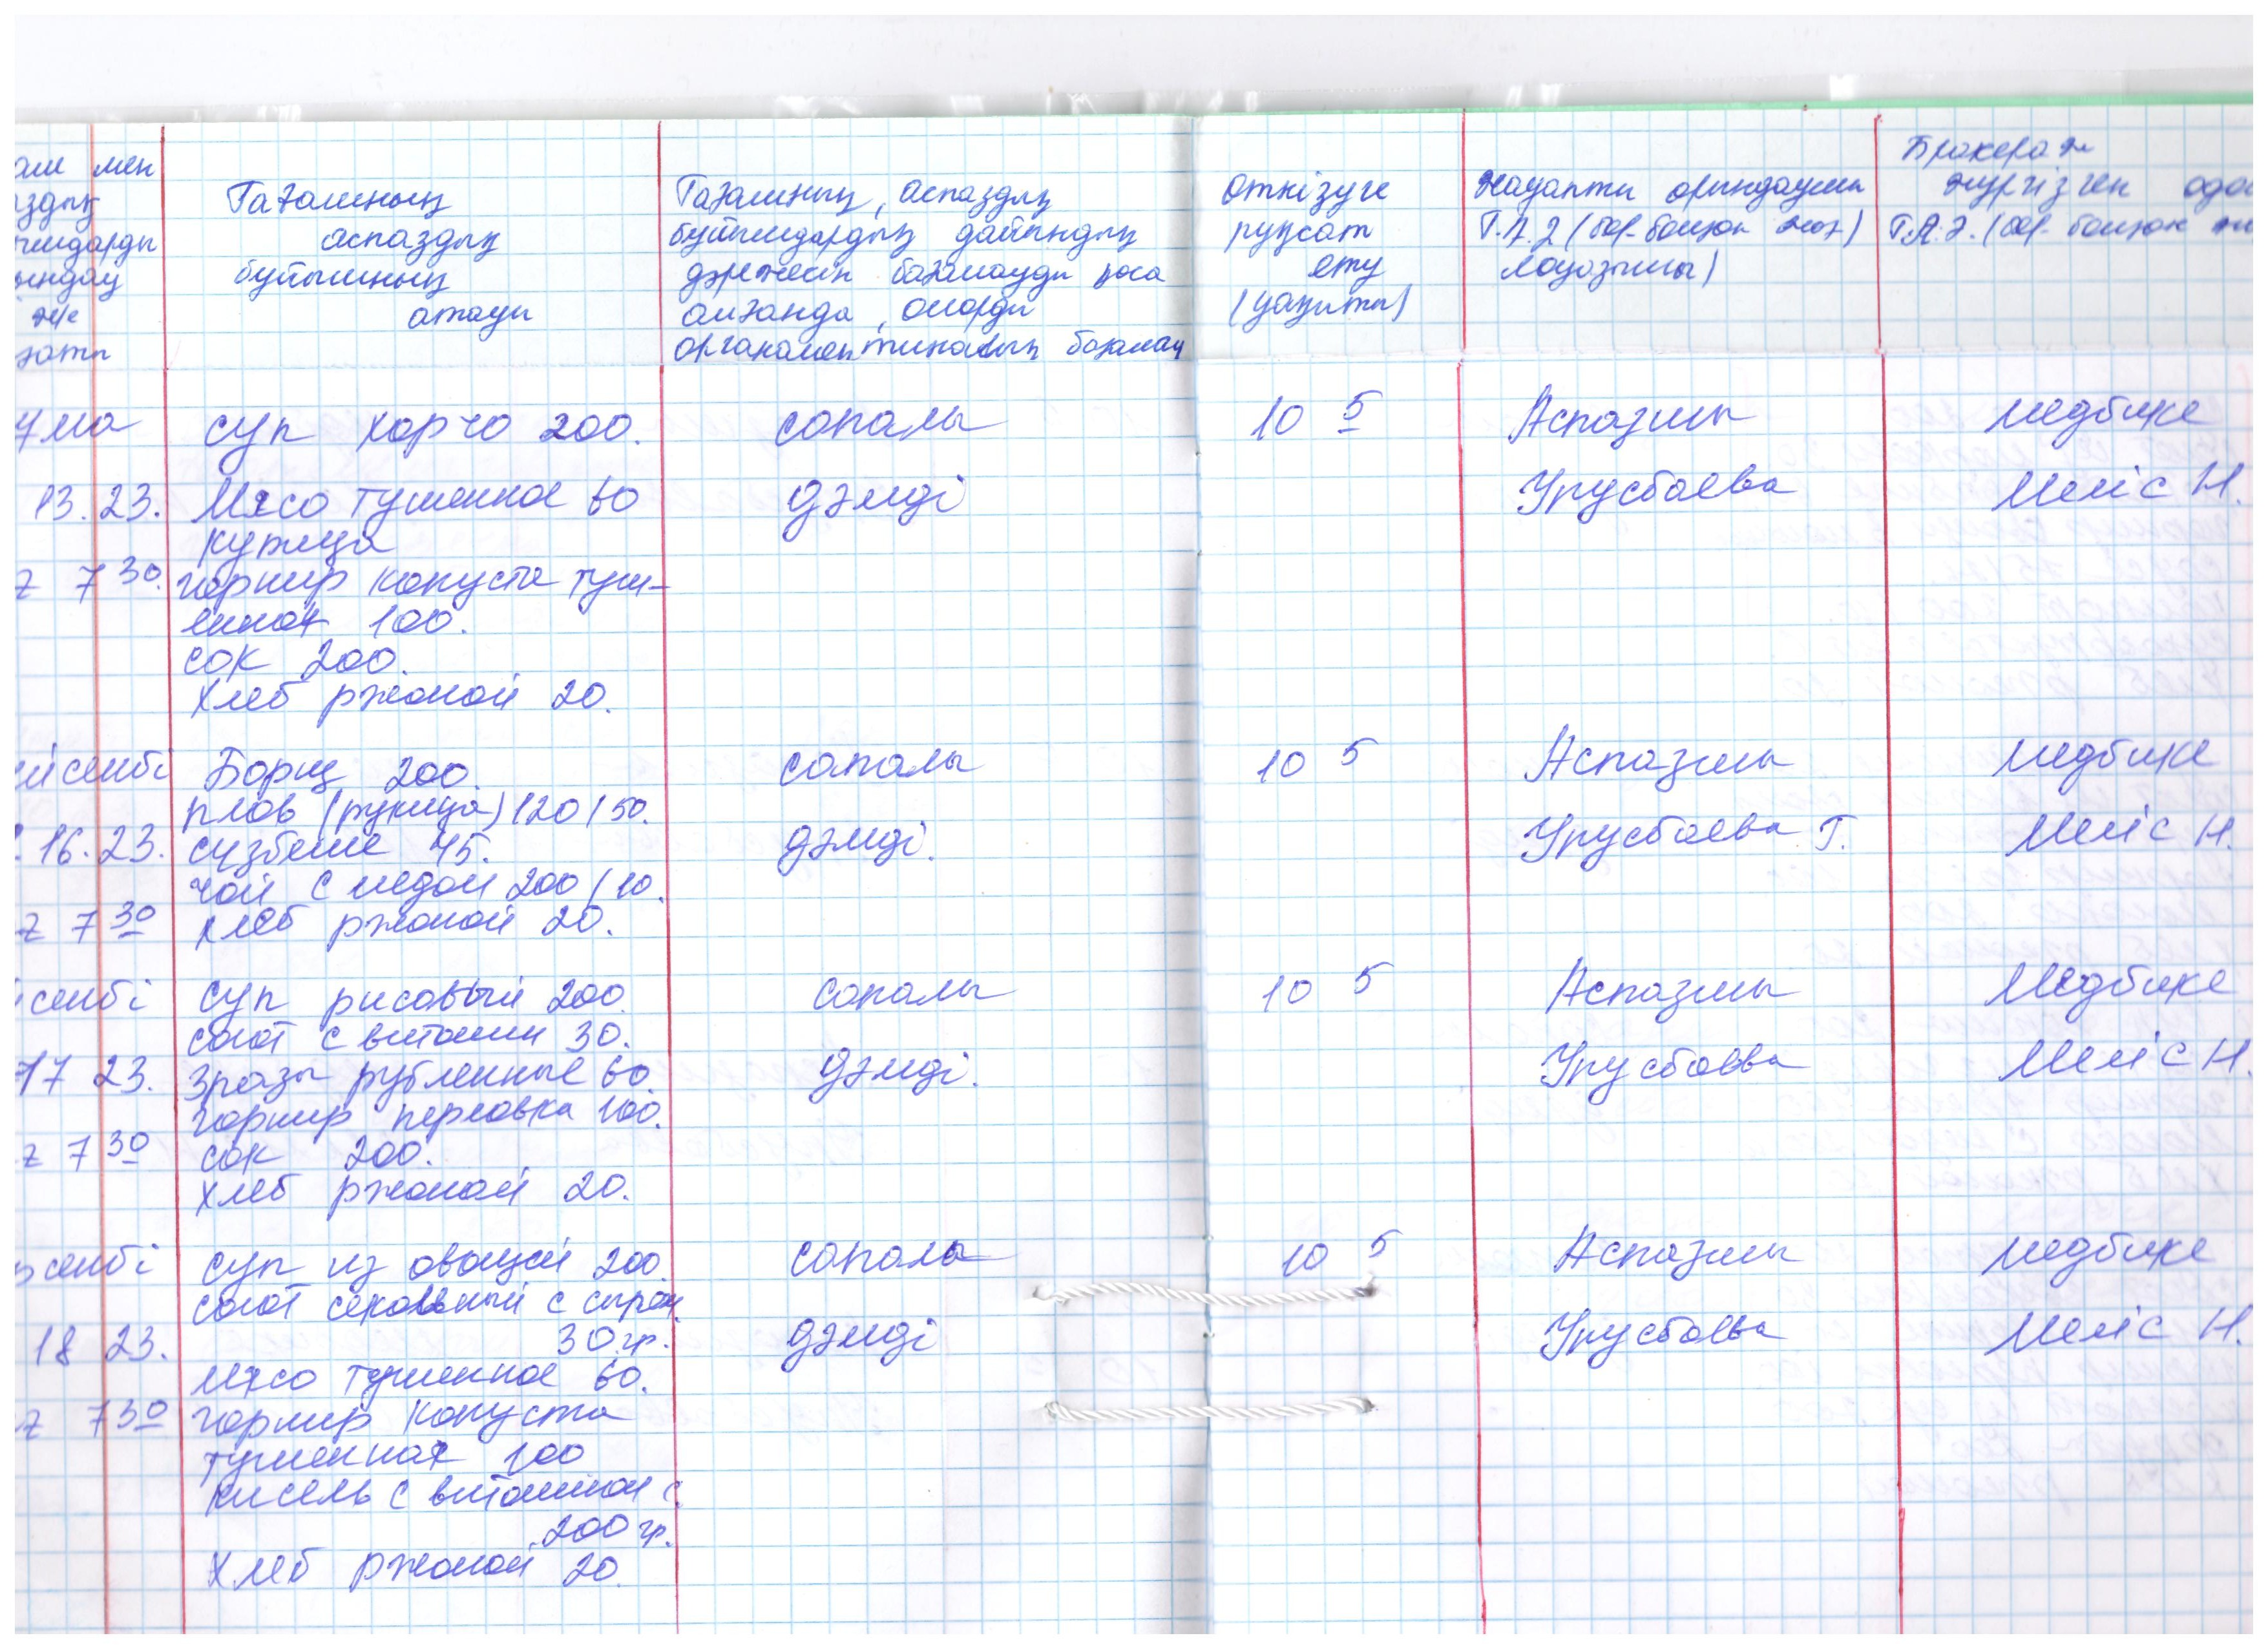 мен
Тағамның
аспаздық
бұйымның
атауы
Тағамның, аспаздық
бұйымдардың дайындық
дәрежесін бағалауды қоса
алғанда, оларды
органолептикалық бағалау
Өткізуге
рұқсат
ету
(уақыты)
Жауапты орындаушы
Т.А.Ә (бар болған жағ)
лауазымы)
Бракераж
жүргізген
Т.А.Ә. (бар болған
ұма
13.23.
7 30.
суп харчо 200.
Мясо тушенное 60
курица
гарнир капуста туш-
енная 100.
сок 200.
Хлеб ржаной 20.
сапалы
дәмді
10 5
Аспазшы
Урусбаева
медбике
Меліс Н.
йсенбі
16.23.
7 30
Борщ 200.
плов (курица) 120/50.
сузбеше 45.
чай с медом 200/10.
хлеб ржаной 20.
сапалы
дәмді.
10 5
Аспазшы
Урусбаева Г.
медбике
Меліс Н.
сенбі
17 23.
7 30
Суп рисовый 200.
салат с витамин 30.
Зразы рубленные 60.
гарнир перловка 100.
сок 200.
хлеб ржаной 20.
сапалы
дәмді.
10 5
Аспазшы
Урусбаева
Медбике
Меліс Н.
сенбі
18 23.
7 30
Суп из овощей 200.
салат свекольный с сыром
30 гр.
Мясо тушенное 60.
гарнир капуста
тушенная 100
Кисель с витамином с
200 гр.
Хлеб ржаной 20.
сапалы
дәмді
10 5
Аспазшы
Урусбаева
медбике
Меліс Н.